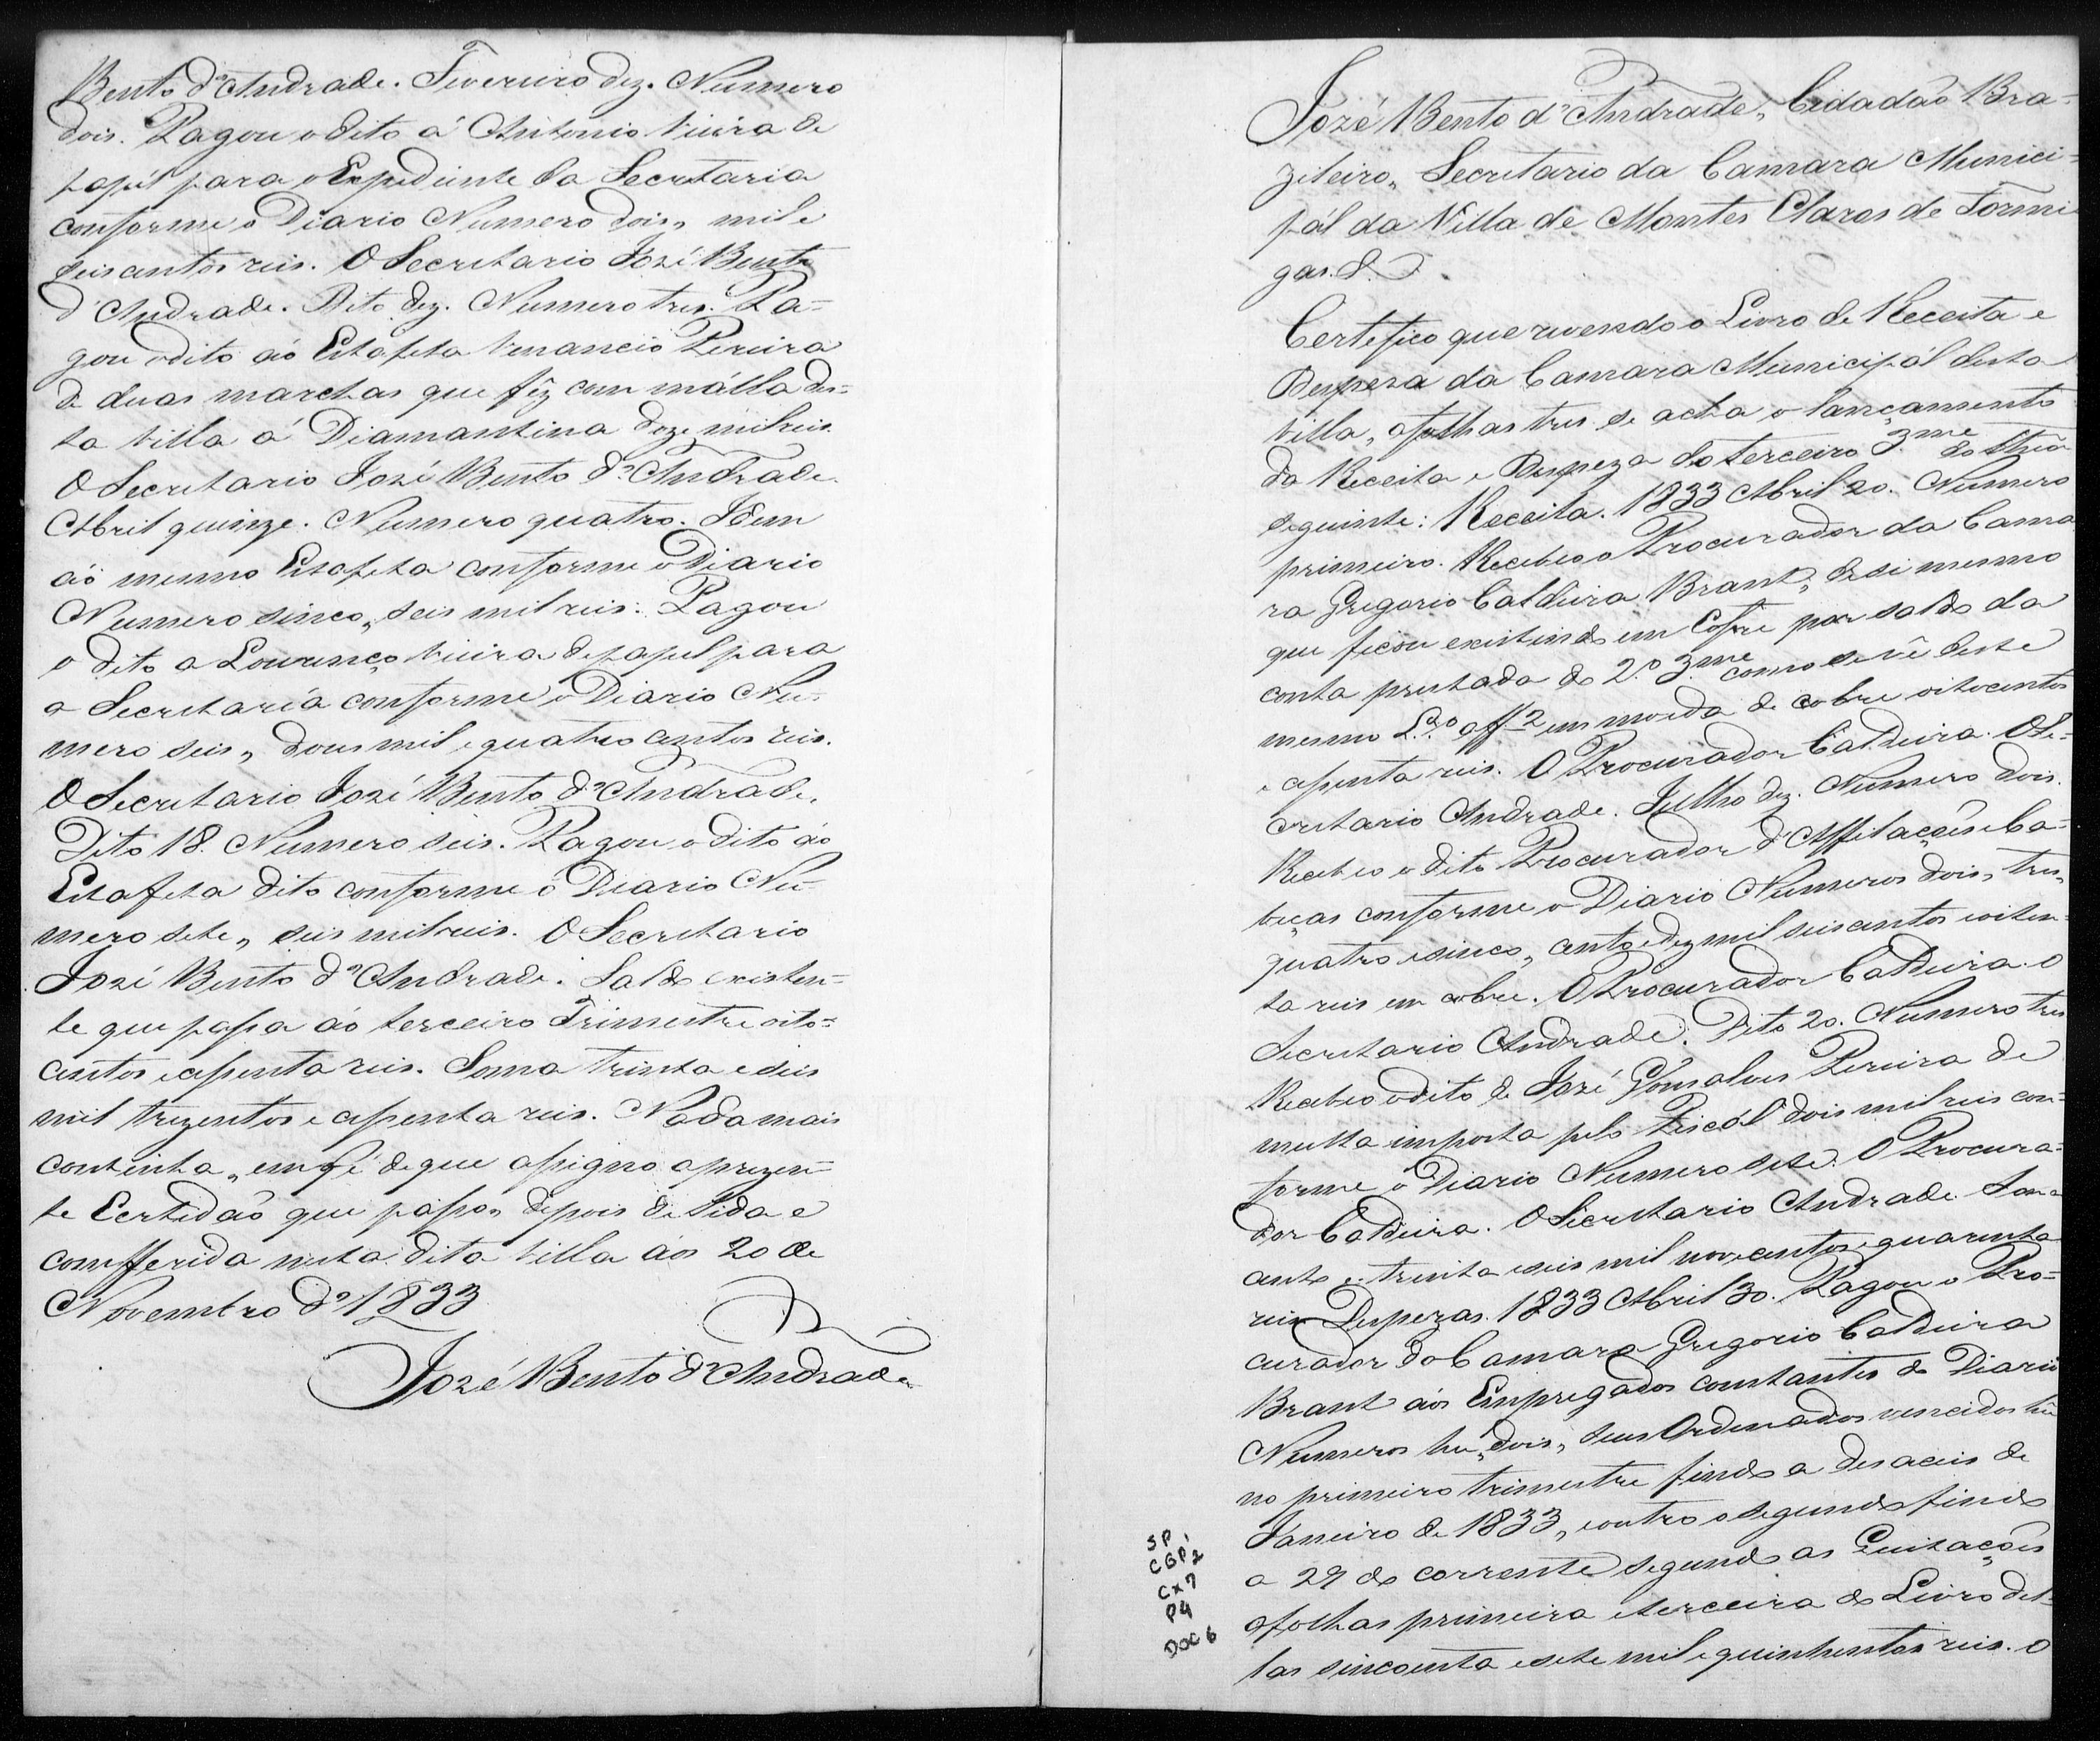 Bento d'Andrade. Fevereiro dez. Numero
dois. Pagou o dito á Antonio Vieira de
papél para o Expediente da Secretaria
conforme o Diario Numero dois, mil e
seis centos reis. O Secretario José Bento
d'Andrade. Dito dez. Numero tres. Pa-
gou o dito áo Estafeta Venancio Pereira
de duas marchas que fêz com málla des-
ta Villa á Diamantina doze mil reis.
O Secretario José Bento d'Andrade.
Abril quinze. Numero quatro. Idem
áo mesmo Estafeta conforme o Diario
Numero sinco, seis mil reis. Pagou
o dito a Lourenço Vieira de papel para
a Secretaria conforme o Diario Nu-
mero seis, dous mil e quatro centos reis.
O Secretario José Bento d'Andrade.
Dito 18. Numero seis. Pagou o dito áo
Estafeta dito conforme o Diario Nu-
mero sete, seis mil reis. O Secretario
José Bento d'Andrade. Saldo existen-
te que passa áo terceiro Trimestre oito-
centos e cessenta reis. Soma trinta e seis
mil trezentos e cessenta reis. Nada mais
continha, em fé de que assigno a prezen-
te Certidaõ que passo, depois de lida e
comfferida nesta dita Villa aós 20 de
Novembro d'1833
José Bento d'Andrade
José Bento d'Andrade, Cidadaõ Bra-
zileiro, Secretario da Camara Munici-
pál da Villa de Montes Claros de Formi-
gas. &.
Certefico que revendo o Livro de Receita e
Despeza da Camara Municipál desta
Villa, afolhas tres se acha o lançamento
da Receita e Despeza do terceiro 3.me do theor
seguinte: Receita. 1833 Abril 20. Numero
primeiro. Recebeo o Procurador da Cama
ra Gregorio Caldeira Brant, de si mesmo
que ficou existindo em Cofre por saldo da
conta prestada do 2.º 3.me como se vê deste
mesmo L.ro a ff 2 em moeda de cobre oitocentos
e cessenta reis. O Procurador Caldeira. O Se-
cretario Andrade. Julho dez. Numero dois.
Recebeo o dito Procurador d'Affilaçoẽs e Ca-
beças conforme o Diario Numeros dois, tres,
quatro e sinco, cento e dez mil seis centos e oiten-
ta reis em cobre. O Procurador Caldeira. O
Secretario Andrade. Dito 20. Numero tres
Recebeo o dito de José Gonsalves Pereira de
multa imposta pelo Fiscál dois mil reis con-
forme o Diario Numero sete. O Procura-
dor Caldeira. O Secretario Andrade. Soma
cento e trinta e seis mil nove centos e quarenta
reis. Despezas. 1833 Abril 30. Pagou o Pro-
curador da Camara Gregorio Caldeira
Brant aós Empregados constantes do Diario
Numeros hu, dois, seus Ordenados vencidos hũ
no primeiro trimestre findo a desaceis de
Janeiro de 1833, e outro o segundo findo
a 29 do corrente segundo as Quitaçoẽs
afolhas primeira e terceira do Livro del-
las sincoenta e sete mil e quinhentos reis. O
SP,
CGP2
CX7
P4
DOC 6